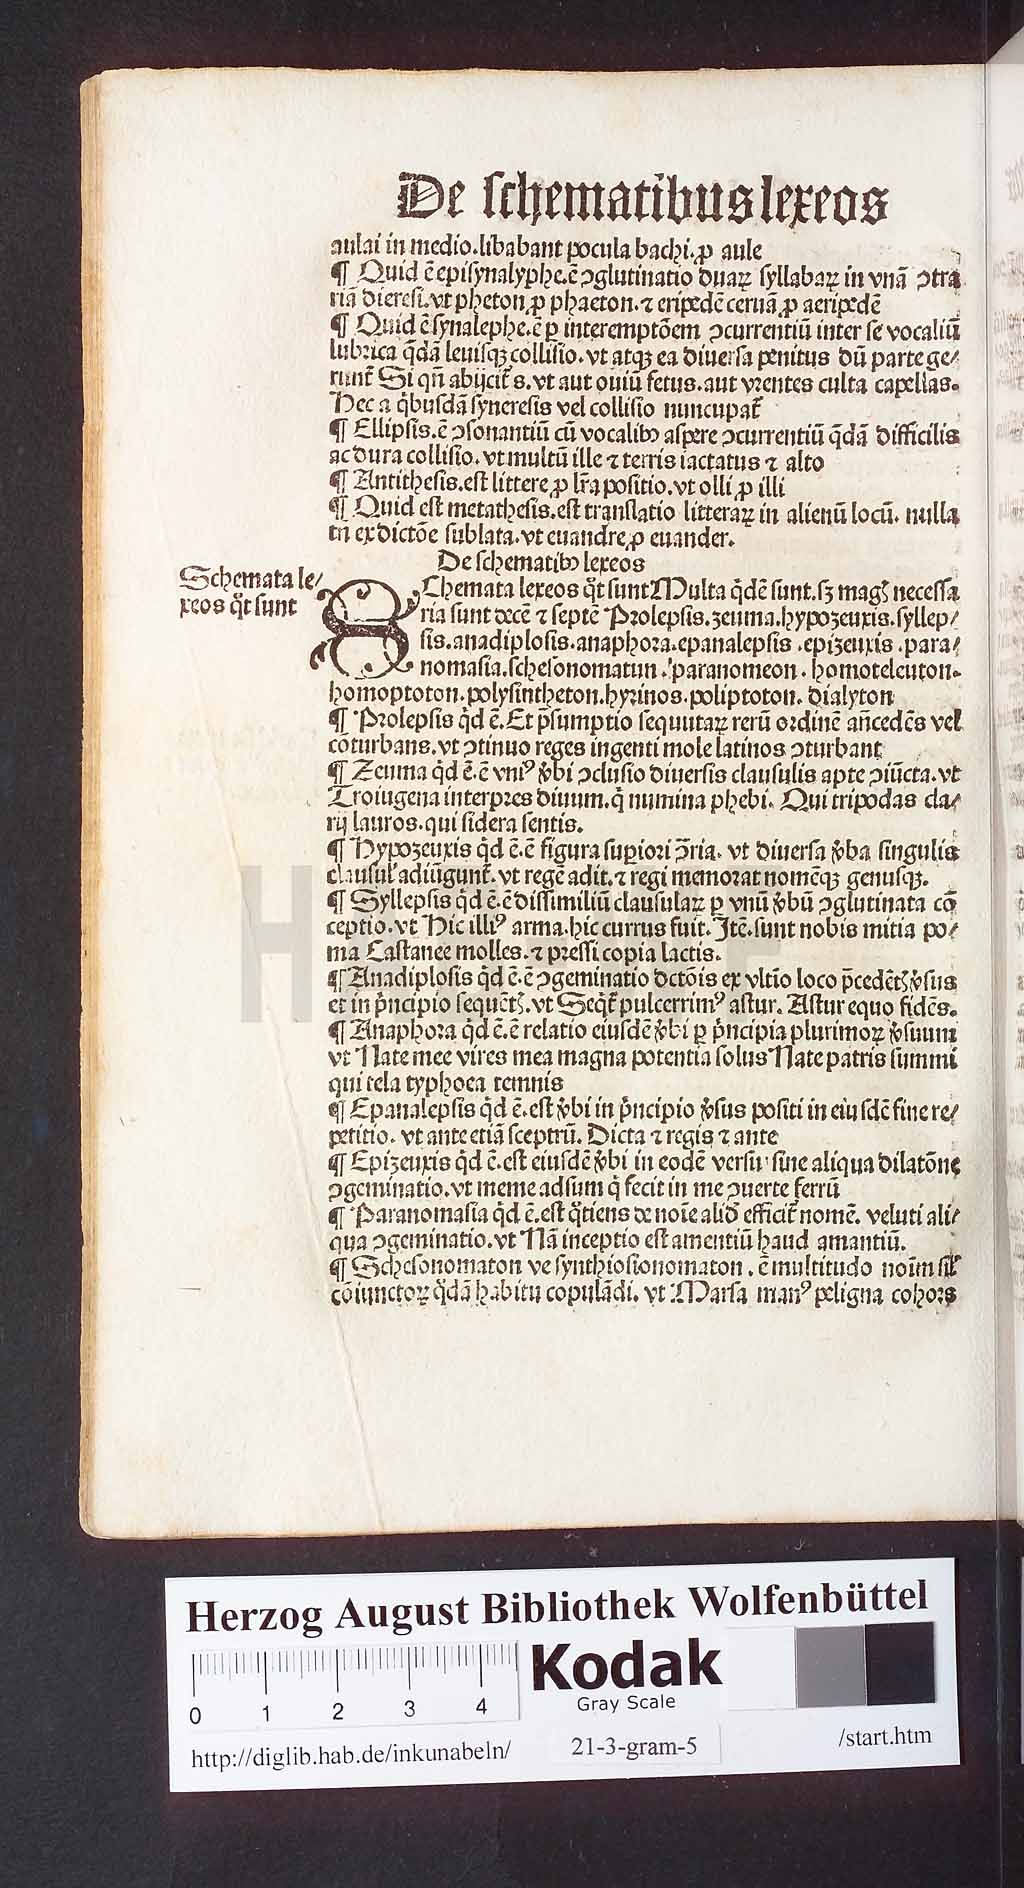 De schematibus lexeos
aulai in medio. libabant pocula bachi. ꝓ aule
¶ Quid ē episynalyphe. ē ꝯglutinatio duaꝝ syllabaꝝ in vnā ꝯtra
riā dieresi. vt pheton ꝓ phaeton. ⁊ eripedē ceruā ꝓ aeripedē
¶ Quid ē synalephe. ē ꝑ interemptōem ꝯcurrentiū inter se vocaliū
lubrica q̄dā leuisqꝫ collisio. vt atqꝫ ea diuersa penitus dū parte ge/
runt᷑ Si qn̄ abijcit᷑ s. vt aut ouiū fetus. aut vrentes culta capellas.
Hec a q̇busdā syneresis vel collisio nuncupat᷑
¶ Ellipsis. ē ꝯsonantiū cū vocalibꝰ aspere ꝯcurrentiū q̄dā difficilis
ac dura collisio. vt multū ille ⁊ terris iactatus ⁊ alto
¶ Antithesis. est littere ꝓ lr̄a positio. vt olli ꝓ illi
¶ Quid est metathesis. est translatio litteraꝝ in alienū locū. nulla
tn̄ ex dictōe sublata. vt euandre ꝓ euander.
De schematibꝰ lexeos
Schemata le/
xeos q̇t sunt
SChemata lexeos q̇t sunt Multa q̇dē sunt. sꝫ magꝭ necessa
ria sunt decē ⁊ septē Prolepsis. zeuma. hypozeuxis. syllep/
sis. anadiplosis. anaphora. epanalepsis. epizeuxis. para/
nomasia. schesonomatun. paranomeon. homoteleuton.
homoptoton. polysintheton. hyrinos. poliptoton. dialyton
¶ Prolepsis q̇d ē. Et p̄sumptio sequutaꝝ rerū ordinē an̄cedēs vel
cōturbans. vt ꝯtinuo reges ingenti mole latinos ꝯturbant
¶ Zeuma q̇d ē. ē vniꝰ v̇bi ꝯclusio diuersis clausulis apte ꝯiūcta. vt
Troiugena interpres diuum. q̇ numina phebi. Qui tripodas cla/
rij lauros. qui sidera sentis.
¶ Hypozeuxis q̇d ē. ē figura supiori ꝯ̄ria. vt diuersa v̇ba singulis
clausul᷑ adiūgunt᷑. vt regē adit. ⁊ regi memorat nomēqꝫ genusqꝫ.
¶ Syllepsis q̇d ē. ē dissimiliū clausulaꝝ ꝑ vnū v̇bū ꝯglutinata cō
ceptio. vt Hic illiꝰ arma. hic currus fuit. Itē. sunt nobis mitia po/
ma Castanee molles. ⁊ pressi copia lactis.
¶ Anadiplosis q̇d ē. ē ꝯgeminatio dctōis ex vltīo loco p̄cedētꝭ v̇sus
et in pͥncipio sequētꝭ. vt Seqt᷑ pulcerrimꝰ astur. Astur equo fidēs.
¶ Anaphora q̇d ē. ē relatio eiusdē v̇bi ꝑ pͥncipia plurimoꝝ v̇suum
vt Nate mee vires mea magna potentia solus Nate patris summi
qui tela typhoea temnis
¶ Epanalepsis q̇d ē. est v̇bi in pͥncipio v̇sus positi in eiusdē fine re/
petitio. vt ante etiā sceptrū. Dicta ⁊ regis ⁊ ante
¶ Epizeuxis q̇d ē. est eiusdē v̇bi in eodē versu sine aliqua dilatōne
ꝯgeminatio. vt meme adsum q̇ fecit in me ꝯuerte ferrū
¶ Paranomasia q̇d ē. est q̇tiens de noīe aliđ efficit᷑ nomē. veluti ali/
qua ꝯgeminatio. vt Nā inceptio est amentiū haud amantiū.
¶ Schesonomaton ve synthiosionomaton. ē multitudo noīm sil᷑
cōiunctoꝝ q̇dā habitu copulādi. vt Marsa manꝰ peligna cohors
Herzog August Bibliothek Wolfenbüttel
0 1 2 3 4
Kodak
Gray Scale
http://diglib.hab.de/inkunabeln/
21-3-gram-5
/start.htm